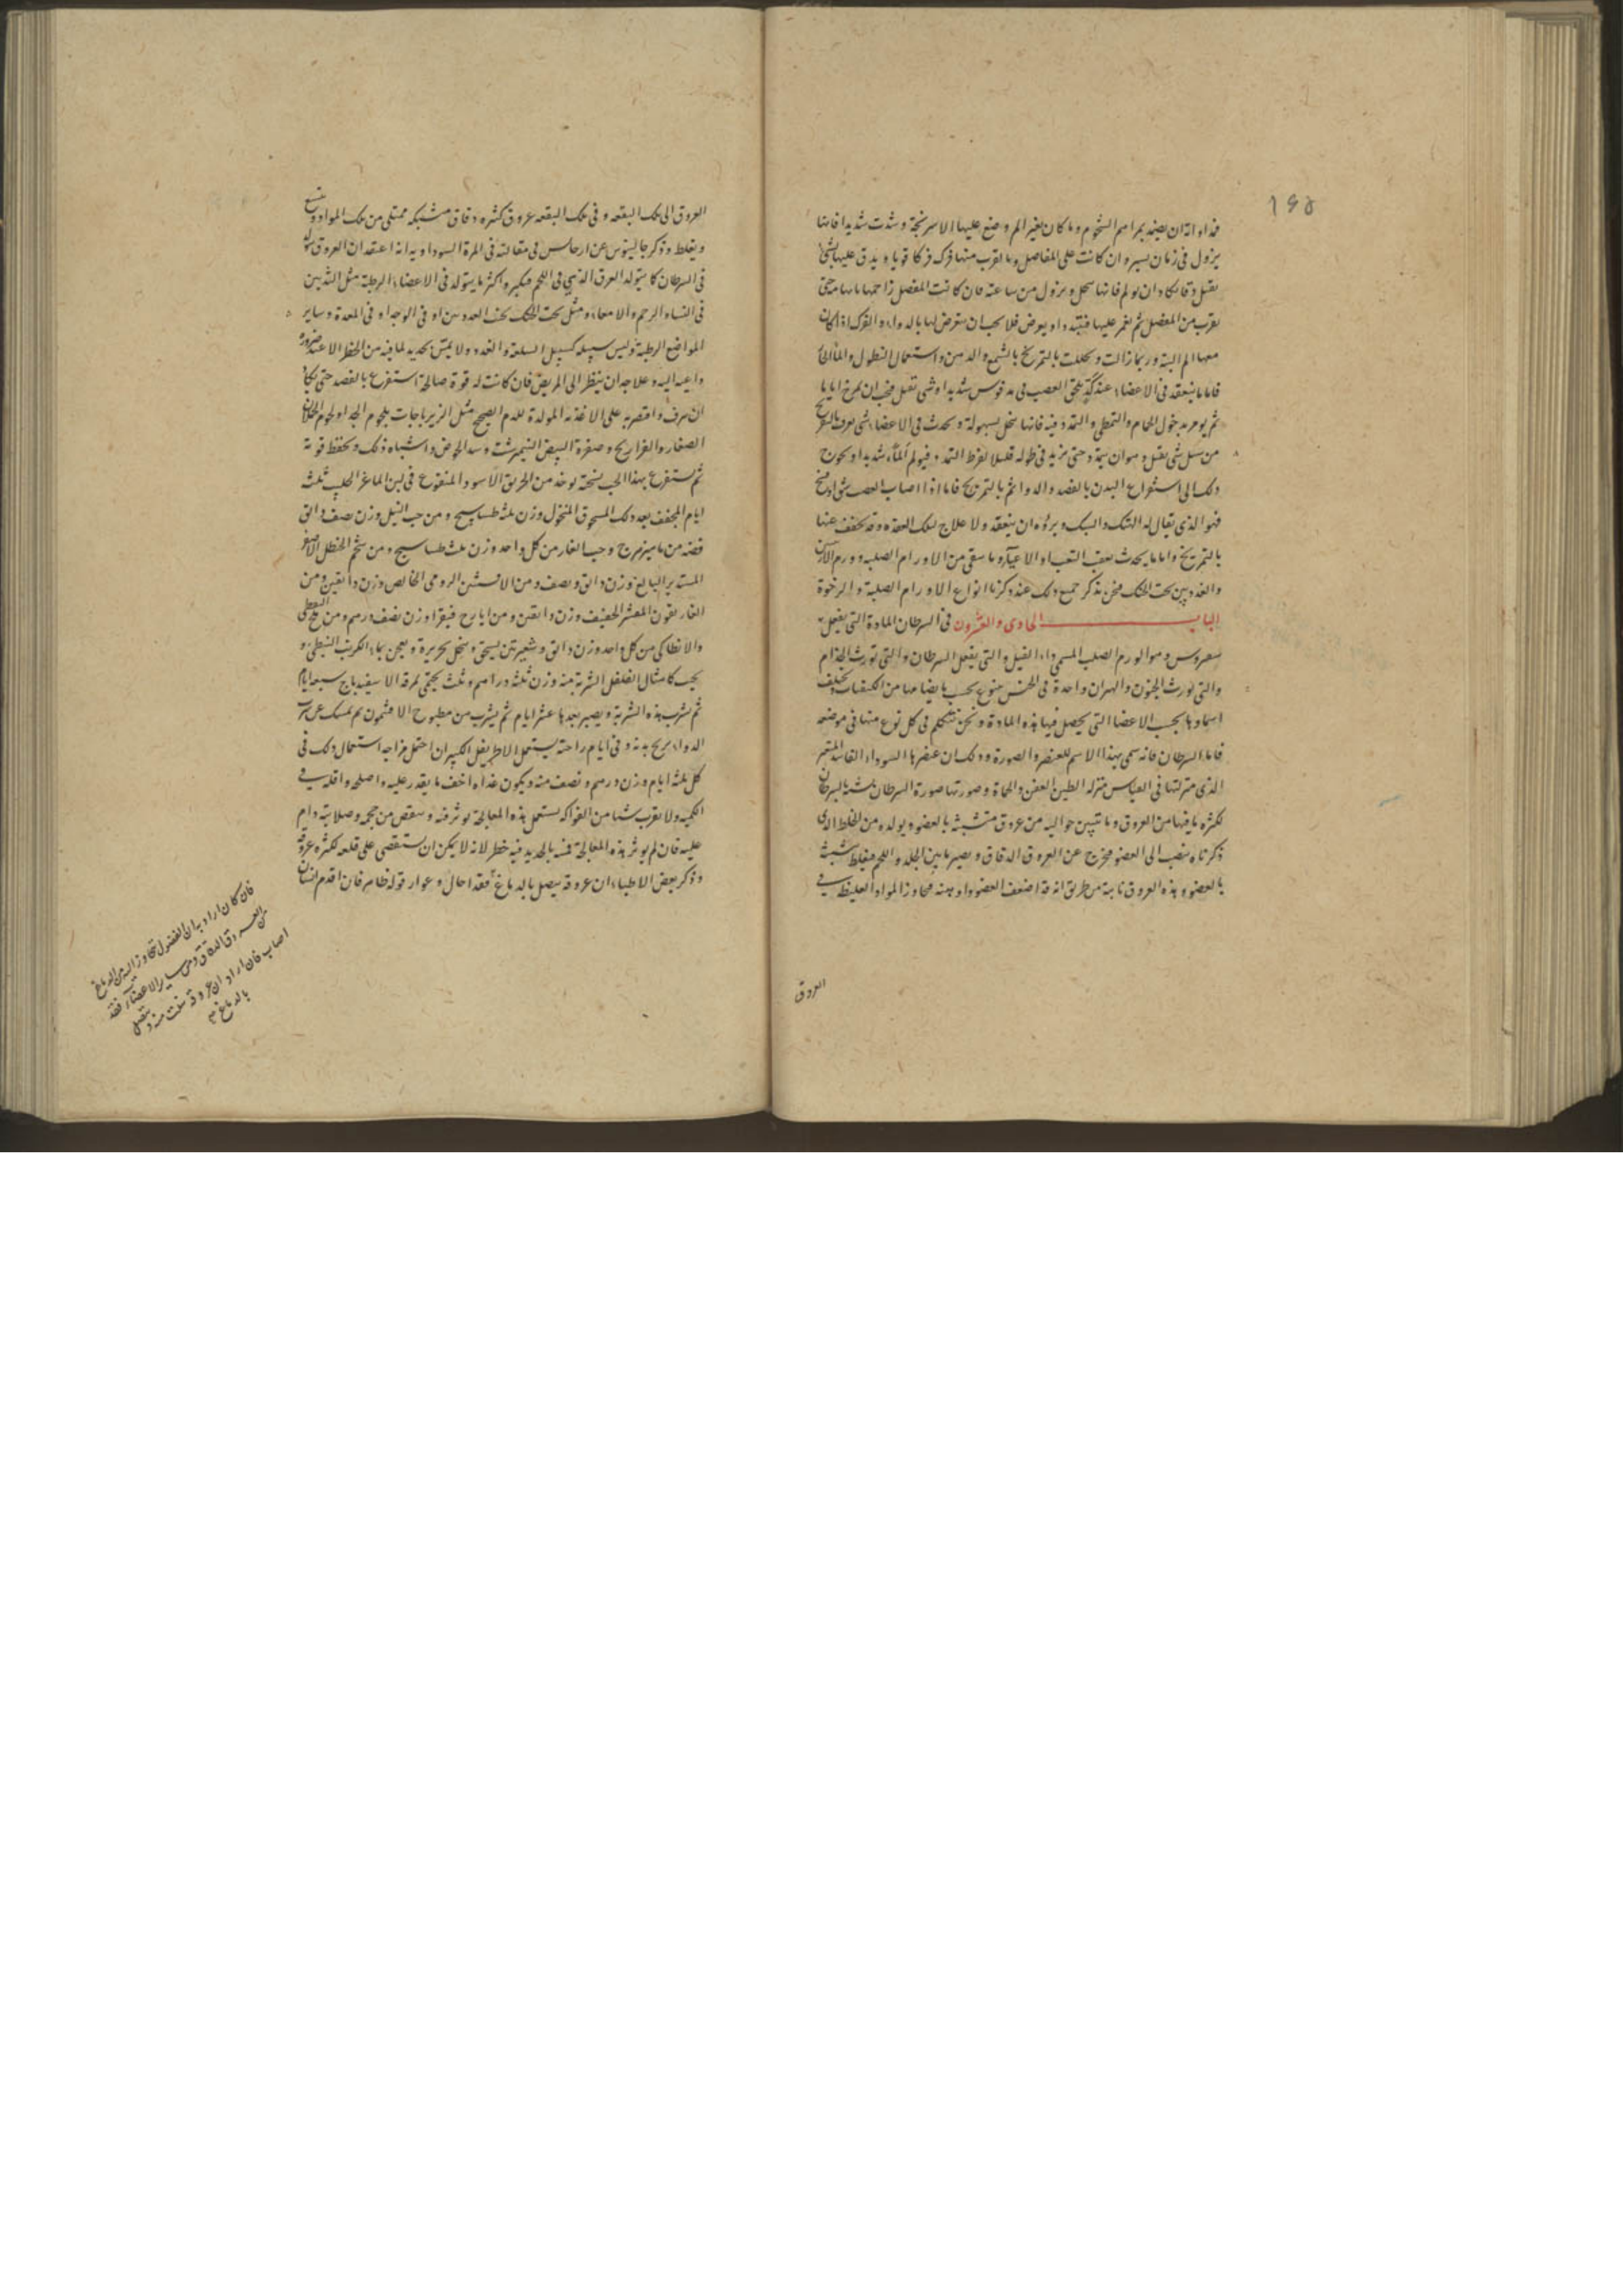 ١٩٥
فداواته ان يضمد بمراهم الشحوم وما كان بغير الم وضع عليها الاسرنجة وشدت شديدا فانها
يزول في زمان يسير وان كانت على المفاصل وما يقرب منها فرك فركا قويا ويدق عليها بشئ
ثقيل دقا فانها تنحل ويزول من ساعته فان كانت المفصل
يقرب من المفصل ثم يغمر عليها فلا يجب ان يتعرض لها بالدواء والفرك اذا كان
معها الم البتة وربما زالت وتحللت بالتمريخ بالشمع والدهن واستعمال النطول والماء الحار
فاما ما ينعقد في الاعضاء عند يلحق العصب في مد قوس شديد او شئ ثقيل فيجب ان يمرخ اياما
ثم يومر بدخول الحمام والتمطي والتمدد فيه فانها تنحل بسهولة وتحدث في الاعضاء شئ يعرف
من شئ ثقيل وهو ان يتمدد حتى يزيد في طوله قليلا لفرط التمدد فيولم ألماً شديدا ويحوج
ذلك الى استفراغ البدن بالفصد والدواء ثم بالتمريخ فاما اذا اصاب العصب
فهو الذي يقال له الهتك والبتك وبرؤه ان ينعقد ولا علاج لتلك العقدة وقد يخفف عنها
بالتمريخ واما ما يحدث بعقب التعب او الاعياء وما بقي من الاورام الصلبة وورم
والغددين تحت الحنك فنحن نذكر جميع ذلك عند ذكرنا انواع الاورام الصلبة والرخوة
الباب الحادي والعشرون في السرطان المادة التي يفعل
سفيروس وهو الورم الصلب المسمى داء الفيل والتي يفعل السرطان والتي تورث الجذام
والتي تورث الجنون والهذيان واحدة في الجنس يتنوع بحسب ما يضامها من الكيفيات ويختلف
اسماؤها بحسب الاعضا التي يحصل فيها هذه المادة ونحن نتكلم في كل نوع منها في موضعه
فاما السرطان فانه سمي بهذا الاسم للعنصر والصورة وذلك ان عنصرها السوداء الفاسد
الذي منزلتها في القياس منزلة الطين العفن والحماة وصورتها صورة السرطان شبه بالسرطان
لكثرة ما فيها من العروق وما تتبين حواليه من عروق متشبثة بالعضو ويولده من الخلط الذي
ذكرناه ينصب الى العضو فيخرج عن العروق الدقاق ويصير ما بين الجلد واللحم فيغلظ
بالعضو وهذه العروق نابتة من طريق انه قد اضعف العضو تجاوز المواد الغليظة في
العروق
العروق الى تلك البقعة وفي تلك البقعة عروق كثيرة دقاق مشبكة ممتلئ من تلك المواد ويتسع
ويغلظ وذكر جالينوس عن ارجاس في مقالته في المرة السوداوية انه اعتقد ان العروق يتولد
في السرطان كما يتولد العرق الذي في اللحم فيكبر واكثر ما يتولد في الاعضاء الرطبة مثل الثديين
في النساء والرحم والامعاء ومثل تحت الحنك تحت الغددين او في الوجه او في المعدة وساير
المواضع الرطبة وليس سبيله كسبيل السلعة والغدد ولا يمس بحديد لما فيه من الخطر الا عند ضرورة
داعية اليه وعلاجه ان ينظر الى المريض فان كانت له قوة صالحة استفرغ بالفصد حتى يكاد
ان يسرف واقتصر به على الاغذية المولدة للدم الصحيح مثل الزيرباجات بلحوم الجدا ولحوم الحملان
الصغار والفراريج وصفرة البيض النيمبرشت واشباه ذلك ويحفظ قوته
ثم يستفرغ بهذا الحب نسخته يوخذ من الخربق الاسود المنقوع في لبن الماعز الحليب ثلثة
ايام المجفف بعد ذلك المسحوق المنخول وزن ثلثة طساسيج ومن حب النيل وزن نصف دانق
ماميزهرج وحب الغار من كل واحد وزن ثلث طساسيج ومن شحم الحنظل الاصفر
المستدير البالغ وزن دانق ونصف ومن الافسنتين الرومي الخالص وزن دانقين ومن
الغاريقون المغشر الخفيف وزن دانقين ومن ايارج فيقرا وزن نصف درهم ومن ملح النفطي
والانطاكي من كل واحد وزن دانق وشعيرتين يسحق وينخل بحريرة ويعجن بماء الكرنب النبطي و
يحبب كامثال الفلفل الشربة منه وزن ثلثة دراهم وثلث يحتمي بمرقة الاسفيدباج سبعة ايام
ثم يشرب هذه الشربة ويصبر بعدها عشر ايام ثم يشرب من مطبوخ الافتيمون ثم يمسك عن شرب
الدواء يريح بدنه وفي ايام راحته يستعمل الاطريفل الكبير ان احتمل مزاجه استعمال ذلك في
كل ثلثة ايام وزن درهم ونصف منه ويكون غذاه اخف ما يقدر عليه واصلحه واقله في
الكمية ولا يقرب شيئا من الفواكه يستعمل هذه المعالجة يوثر فيه وينقص من حجمه وصلابته دام
عليه فان لم يوثر هذه المعالجة فمسه بالحديد فيه خطر لانه لا يمكن ان يستقصى على قلعه لكثرة عروقه
وذكر بعض الاطباء ان عروقه يتصل بالدماغ فقد احال وعوار قوله ظاهر فان اقدم انسان
فان كان اراد به ان الفضول تتجاوز اليه من الدماغ
من العروق الدقاق ومن ساير الاعضاء فقد
اصاب فان اراد ان عروقه نبتت منه ويتصل
بالدماغ